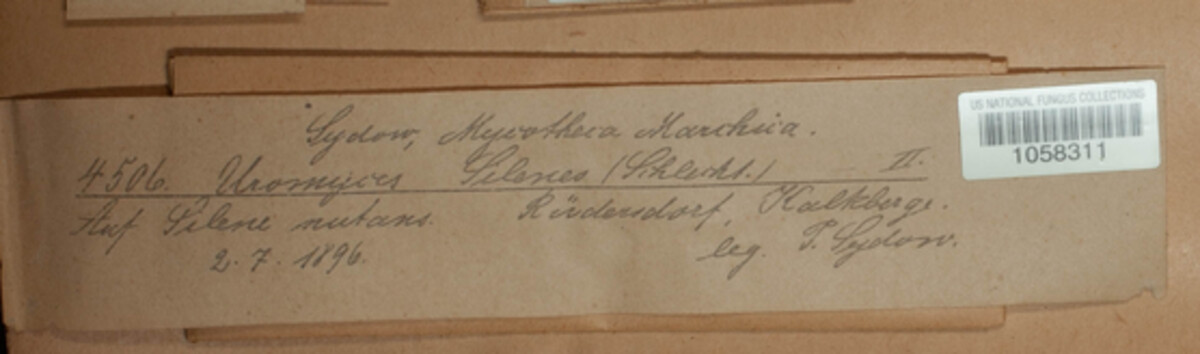 Sydow, Mycotheca Marchica.
4506. Uromyces Silenes (Schlecht.) II.
Auf Silene nutans. Rüdersdorf, Kalkberge.
2. 7. 1896. leg. P. Sydow.
US NATIONAL FUNGUS COLLECTIONS
1058311